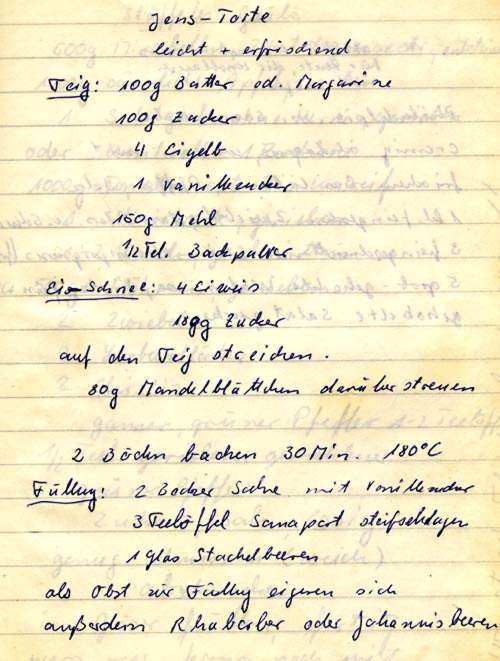 Jens-Torte
leicht + erfrischend
Teig: 100g Butter od. Margarine
100g Zucker
4 Eigelb
1 Vanillezucker
150g Mehl
1/2 Tl. Backpulver
Ei-Schnee: 4 Eiweis
180g Zucker
auf den Teig streichen.
80g Mandelblättchen darüber streuen
2 Böden backen 30 Min. 180°C
Füllung: 2 Becher Sahne mit Vanillezucker
3 Teelöffel Sanapart steifschlagen
1 Glas Stachelbeeren
als Obst zur Füllung eigenen sich
außerdem Rhabarber oder Johannisbeeren